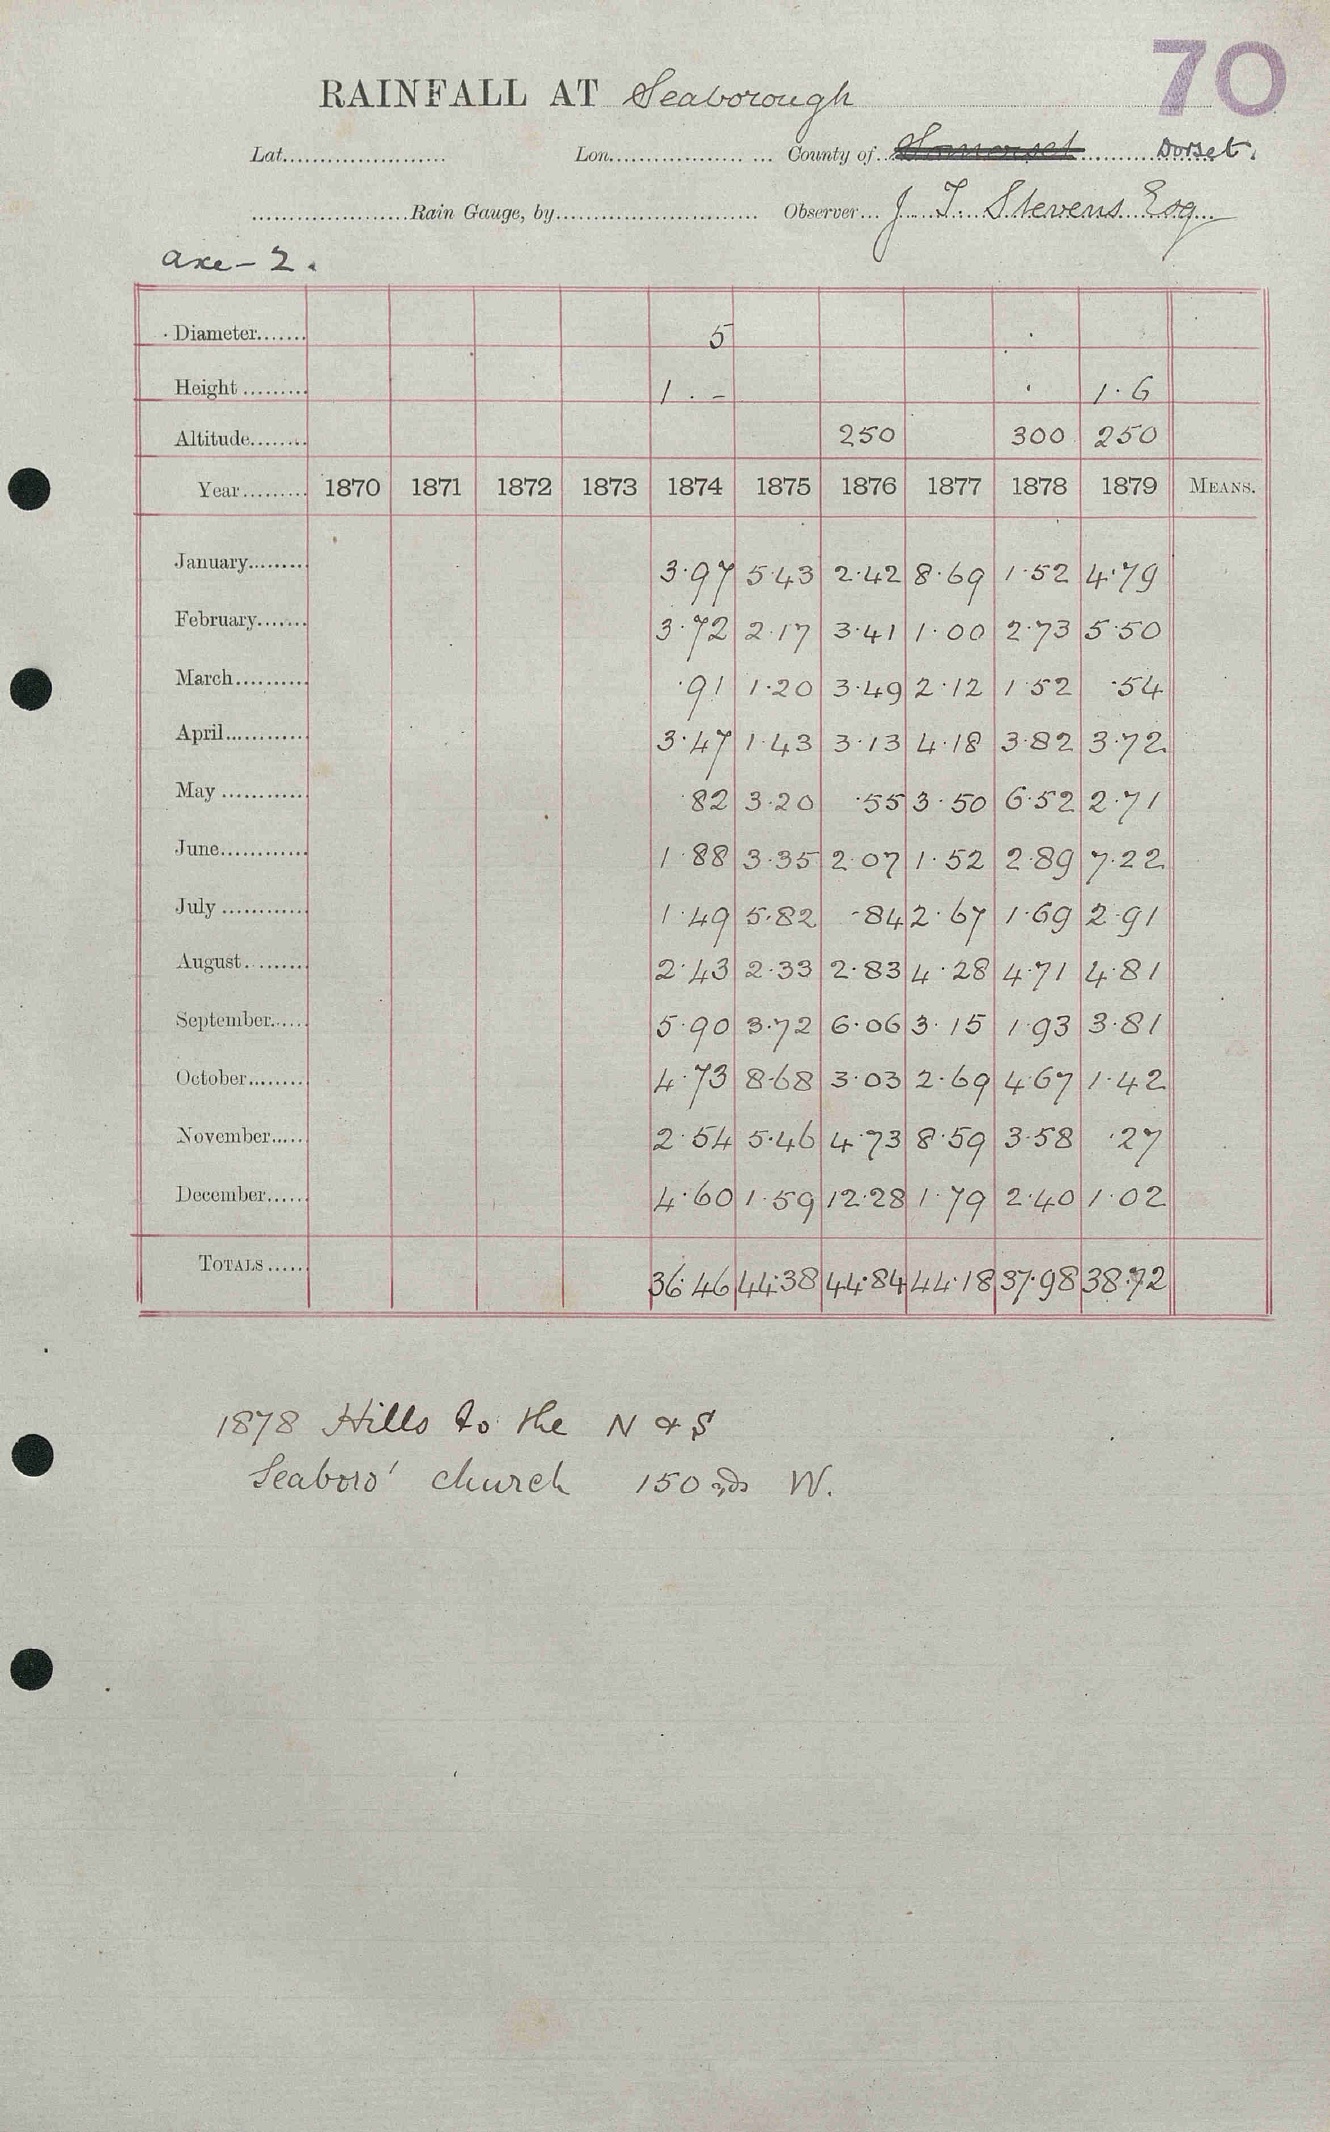 70
RAINFALL AT Seaborough
Lat. Lon. County of Somerset Dorset.
Rain Gauge, by Observer J. T. Stevens Esq
axe - 2.
Diameter 5
Height 1 . - 1.6
Altitude 250 300 250
Year 1870 1871 1872 1873 1874 1875 1876 1877 1878 1879 MEANS.
January 3.97 5.43 2.42 8.69 1.52 4.79
February 3.72 2.17 3.41 1.00 2.73 5.50
March .91 1.20 3.49 2.12 1.52 .54
April 3.47 1.43 3.13 4.18 3.82 3.72
May .82 3.20 .55 3.50 6.52 2.71
June 1.88 3.35 2.07 1.52 2.89 7.22
July 1.49 5.82 .84 2.67 1.69 2.91
August 2.43 2.33 2.83 4.28 4.71 4.81
September 5.90 3.72 6.06 3.15 1.93 3.81
October 4.73 8.68 3.03 2.69 4.67 1.42
November 2.54 5.46 4.73 8.59 3.58 .27
December 4.60 1.59 12.28 1.79 2.40 1.02
TOTALS 36.46 44.38 44.84 44.18 37.98 38.72
1878 Hills to the N & S
Seaboro' church 150 yds W.